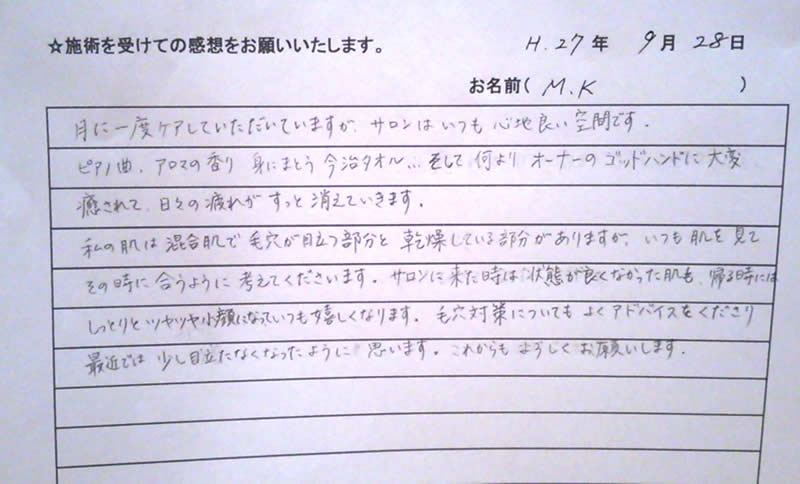 ☆施術を受けての感想をお願いいたします。 H.27年 9月 28日
お名前( M.K )
月に一度ケアしていただいていますが、サロンはいつも心地良い空間です。
ピアノ曲、アロマの香り 身にまとう 今治タオル… そして 何より オーナーの ゴッドハンドに 大変
癒されて、日々の疲れが すっと 消えていきます。
私の肌は 混合肌で 毛穴が目立つ部分と 乾燥している部分がありますが、いつも 肌を 見て
その時に 合うように 考えてくださいます。サロンに来た時は 状態が良くなかった肌も、帰る時には
しっとりとツヤツヤ小顔になっていつも嬉しくなります。毛穴対策についても よくアドバイスをくださり
最近では 少し目立たなくなったように 思います。これからも よろしくお願いします.